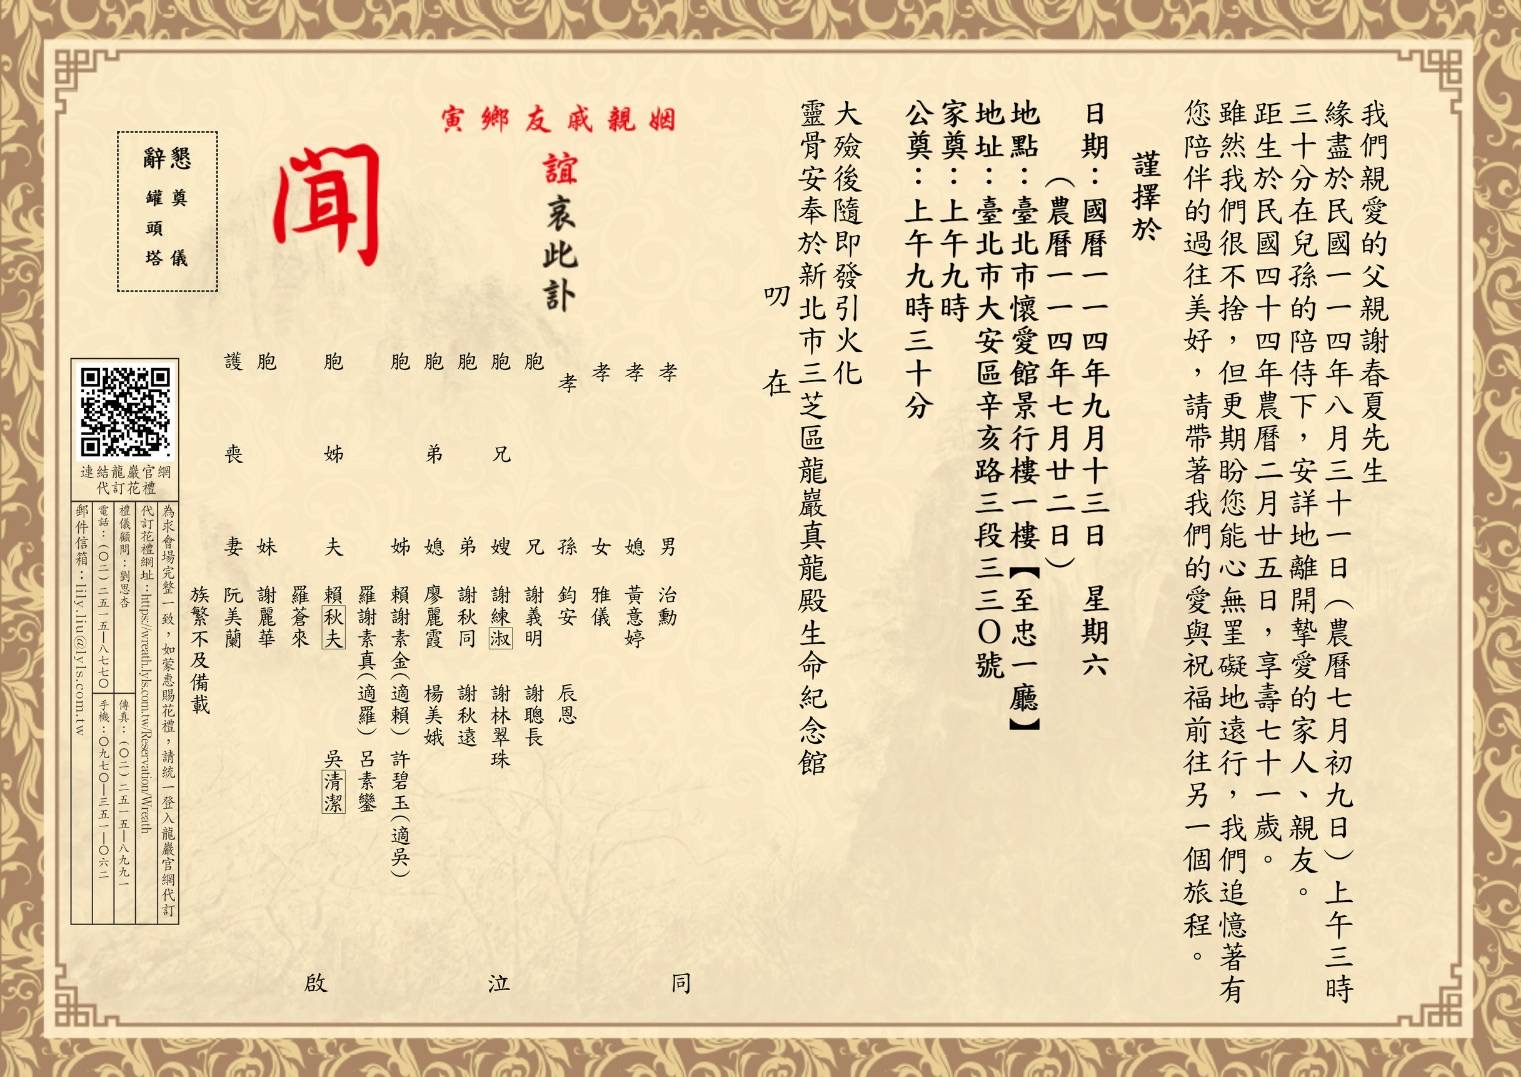 我們親愛的父親謝春夏先生
緣盡於民國一一四年八月三十一日（農曆七月初九日）上午三時
三十分在兒孫的陪侍下，安詳地離開摯愛的家人、親友。
距生於民國四十四年農曆二月廿五日，享壽七十一歲。
雖然我們很不捨，但更期盼您能心無罣礙地遠行，我們追憶著有
您陪伴的過往美好，請帶著我們的愛與祝福前往另一個旅程。
謹擇於
日期：國曆一一四年九月十三日　星期六
（農曆一一四年七月廿二日）
地點：臺北市懷愛館景行樓一樓【至忠一廳】
地址：臺北市大安區辛亥路三段三三〇號
家奠：上午九時
公奠：上午九時三十分
大殮後隨即發引火化
靈骨安奉於新北市三芝區龍巖真龍殿生命紀念館
叨　在
寅鄉友戚親姻
誼哀此訃
聞
孝男　治勳
孝媳　黃意婷
孝女　雅儀
孝孫　鈞安　辰恩
胞兄　謝義明　謝聰長
胞兄嫂　謝練淑　謝林翠珠
胞弟　謝秋同　謝秋遠
胞弟媳　廖麗霞　楊美娥
胞姊　賴謝素金（適賴）　許碧玉（適吳）
羅謝素真（適羅）　呂素鑾
胞姊夫　賴秋夫　吳清潔
羅蒼來
胞妹　謝麗華
護喪妻　阮美蘭
族繁不及備載
同　泣　啟
懇辭
奠儀
罐頭塔
連結龍巖官網
代訂花禮
為求會場完整一致，如蒙惠賜花禮，請統一登入龍巖官網代訂
代訂花禮網址：https://wreath.lyls.com.tw/Reservation/Wreath
禮儀顧問：劉思杏
傳真：（〇二）二五一五—八九九一
電話：（〇二）二五一五—八七七〇
手機：〇九七〇—三五一—〇六二
郵件信箱：lily.liu@lyls.com.tw